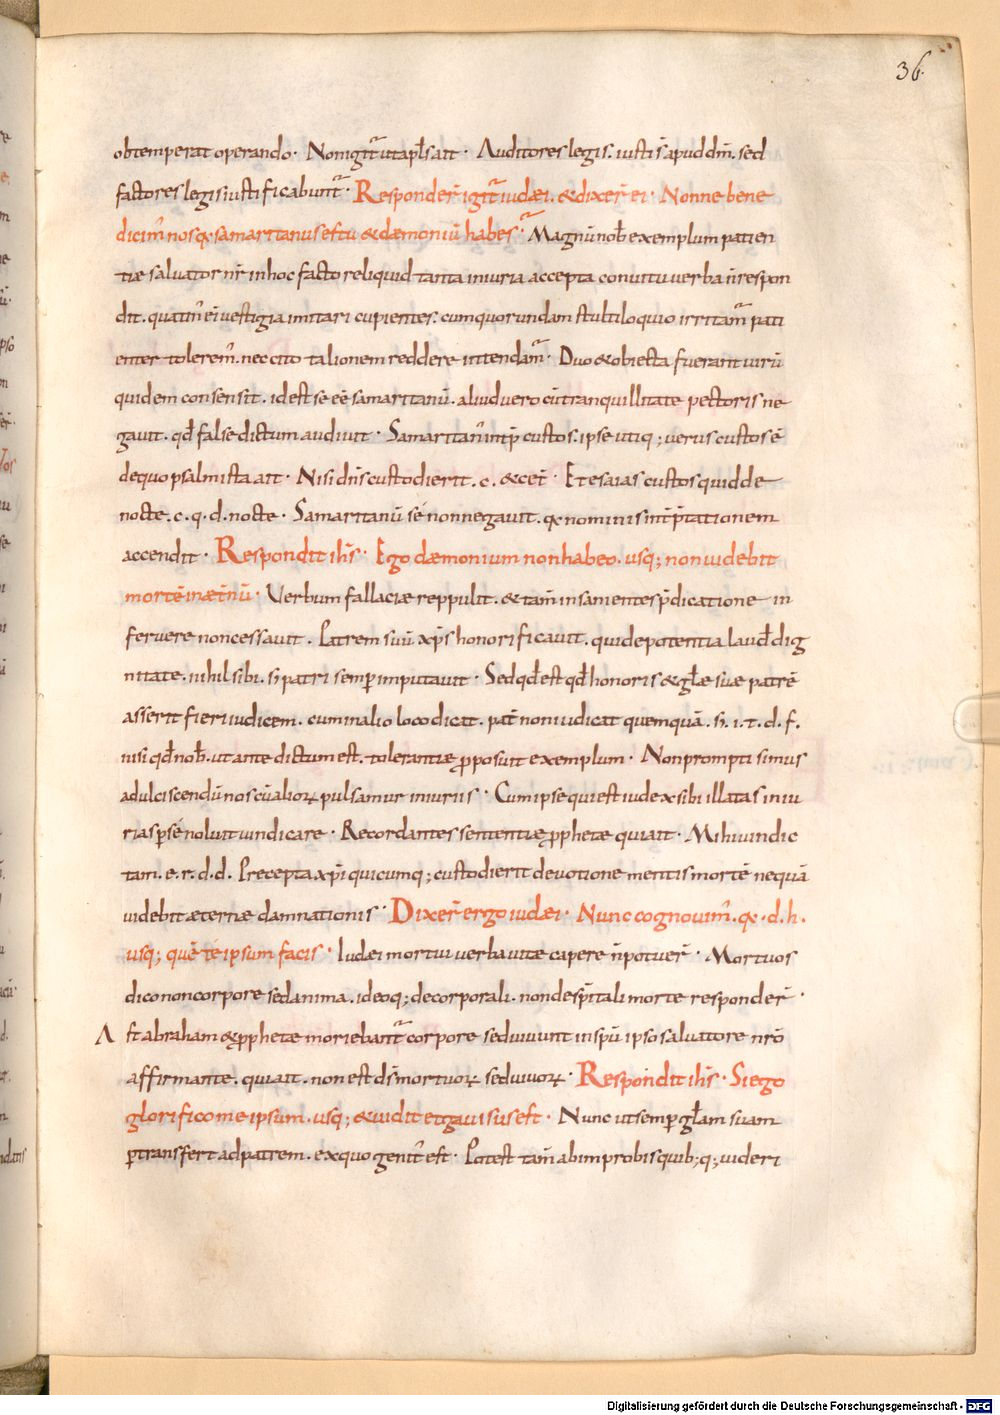 36.
obtemperat operando. Non igit̄ ut apl̄s ait. Auditores legis. iusti s̄ apud dm̄. sed
factores legis iustificabunt̄. Responder̄ igit̄ iudæi. & dixer̄ ei. Nonne bene
dicim̄ nos qꝫ samaritanus es tu & dæmoniū habes. Magnū nob̄ exemplum patien
tiæ salvator nr̄ in hoc facto reliquid tanta iniuria accepta convitii verba n̄ respon
dit. quatin̄ ei vestigia imitari cupientes. cum quorundam stultiloquio irritam̄ pati
enter tolerem̄. nec cito talionem reddere intendam̄. Duo & obiecta fuerant uirū
quidem consensit. id est se eē samaritanū. aliud vero cū tranquillitate pectoris ne
gavit. qd̄ false dictum audivit. Samaritan̄ int̄p̄ custos. ipse utiq; verus custos ē
de quo psalmista ait. Nisi dn̄s custodierit. c. & cet̄. Et esaias custos quid de
nocte. c. q. d. nocte. Samaritanū sē non negavit. qꝫ nominis int̄p̄tationem
accendit. Respondit ih̄s. Ego dæmonium non habeo. usq; non uidebit
mortē in æt̄nū. Verbum fallaciæ reppulit. & tam̄ insa mentes p̄dicatione in
fervere non cessavit. Patrem suū xp̄s honorificavit. qui de potentia laud̄ dig
nitate. nihil sibi. s; patri semꝑ imputavit. Sed qd̄ est qd̄ honoris & gl̄æ suæ patrē
asserit fieri iudicem. cum in alio loco dicat. pat̄ non iudicat quemquā. s;. i. t. d. f.
nisi qd̄ nob̄. ut ante dictum est. tolerantiæ ꝓposuit exemplum. Non prompti simus
ad ulciscendū nos cū alioꝝ pulsamur iniuriis. Cum ipse qui est iudex sibi illatas iniu
rias ꝑ sē noluit uindicare. Recordantes sententiæ ꝓphetæ qui ait. Mihi uindic
tam. e. r. d. d. Precepta xp̄i quicumq; custodierit devotione mentis mortē nequā
uidebit æternæ damnationis. Dixer̄ ergo iudæi. Nunc cognovim̄. qꝫ. d. h.
usq; quē tē ipsum facis. Iudæi mortui verba vitæ capere n̄ potuer̄. Mortuos
dico non corpore sed anima. ideoq; de corporali. non de sp̄itali morte responder̄.
A ft abraham & ꝓphetæ moriebant̄ corpore sed vivunt in sp̄u ipso salvatore nr̄o
affirmante. qui ait. non est ds̄ mortuoꝝ sed vivoꝝ. Respondit ih̄s. Si ego
glorifico me ipsum. usq; & uidit et gavisus est. Nunc ut semꝑ gl̄am suam
ꝑtransfert ad patrem. ex quo genit̄ est. Potest tam̄ ab improbis quib;q; uideri
Digitalisierung gefördert durch die Deutsche Forschungsgemeinschaft - DFG